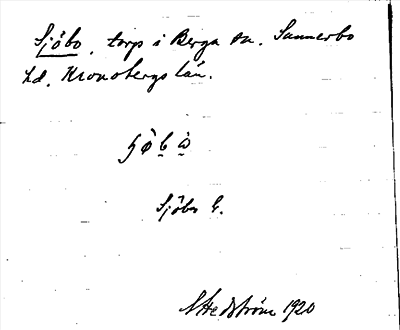 Sjöbo, torp i Berga sn. Sunnerbo
hd. Kronobergs län.
Sjöbo G.
Hedström 1920